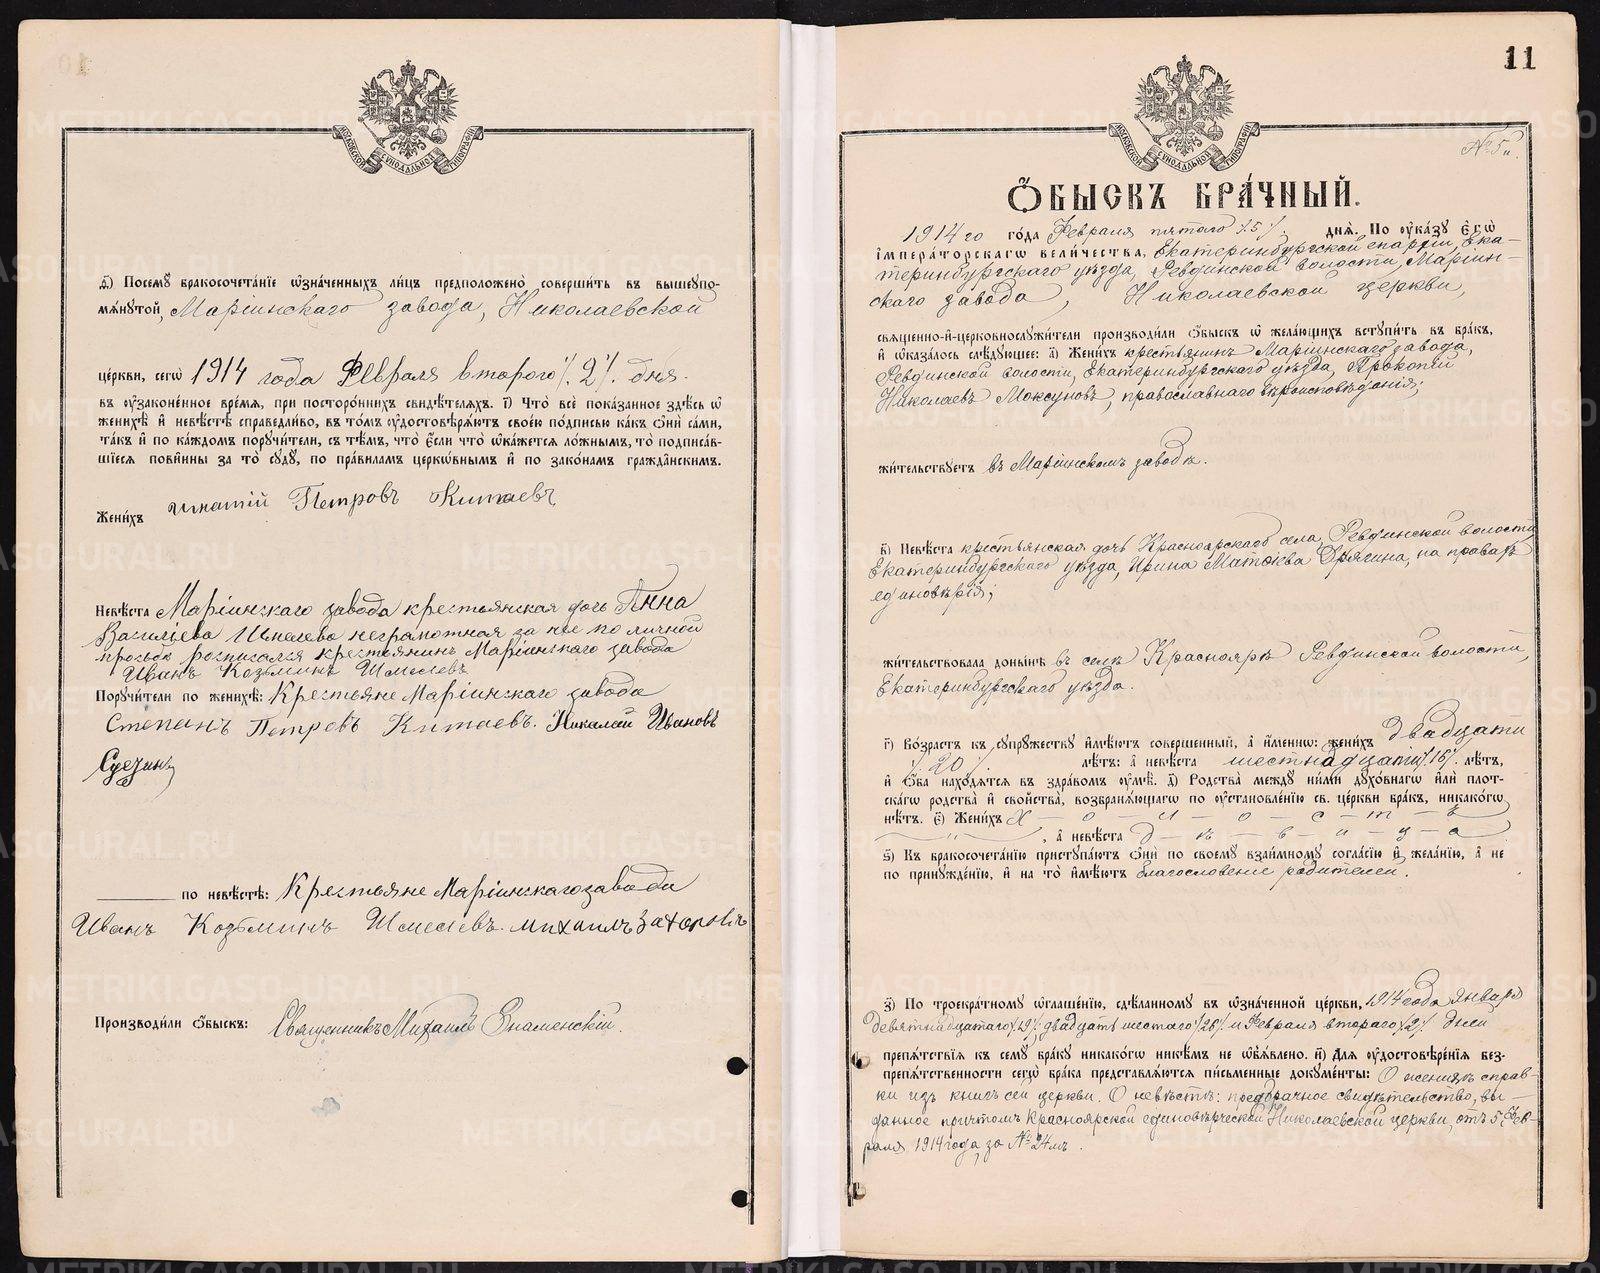 МОСКОВСКОЙ СУНОДАЛЬНОЙ ТИПОГРАФІИ
д҃) Посемꙋ бракосочета́ніе ѡ҆зна́ченныхъ ли́цъ предположено̀ соверши́ть въ вышеꙋпо-
мѧ́нꙋтой, Маріинскаго завода, Николаевской
це́ркви, сегѡ̀ 1914 года Февраля второго /.2/. дня.
въ ᲂу҆зако́ненное вре́мѧ, при посторо́ннихъ свидѣ́телѧхъ. і҃) Что̀ всѐ пока́занное здѣ́сь ѡ҆
женихѣ̀ и҆ невѣ́стѣ справедли́во, въ то́мъ ᲂу҆достовѣрѧ́ютъ свое́ю по́дписью ка́къ ѻ҆нѝ са́ми,
та́къ и҆ по ка́ждомъ порꙋчи́тели, съ тѣ́мъ, что̀ є҆́сли что̀ ѡ҆ка́жетсѧ ло́жнымъ, то̀ подписа́в-
шіесѧ пови́нны за то̀ сꙋдꙋ̀, по пра́виламъ церкѡ́внымъ и҆ по зако́намъ гражда́нскимъ.
Жени́хъ Игнатій Петровъ Китаевъ
Невѣ́ста Маріинскаго завода крестьянская дочь Анна
Васильева Шмелева неграмотная за нее по личной
просьбѣ росписался крестьянинъ Маріинскаго завода
Иванъ Козьминъ Шмелевъ
Порꙋчи́тели по женихѣ̀: Крестьяне Маріинскаго завода
Степанъ Петровъ Китаевъ. Николай Ивановъ
по невѣ́стѣ: Крестьяне Маріинскаго завода
Иванъ Козьминъ Шмелевъ. Михаилъ Захоровъ
Производи́ли ѻ҆́быскъ: Священникъ Михаилъ Знаменскій.
11
МОСКОВСКОЙ СУНОДАЛЬНОЙ ТИПОГРАФІИ
№ 5й.
Ѻ҆́БЫСКЪ БРА́ЧНЫЙ.
1914го го́да Февраля пятого /.5/. днѧ̀. По ᲂу҆ка́зꙋ є҆гѡ̀
і҆мпера́торскагѡ вели́чества, Екатеринбургской епархіи, Ека-
теринбургскаго уѣзда, Ревдинской волости, Маріин-
скаго завода, Николаевской церкви,
свѧще́нно-и҆-церковнослꙋжи́тели производи́ли ѻ҆́быскъ ѡ҆ жела́ющихъ встꙋпи́ть въ бра́къ,
и҆ ѡ҆каза́лось слѣ́дꙋющее: а҃) Жени́хъ крестьянинъ Маріинскаго завода,
Ревдинской волости, Екатеринбургскаго уѣзда, Прокопій
Николаевъ Моксуновъ, православнаго вѣроисповѣданія;
жи́тельствꙋетъ въ Маріинскомъ заводѣ.
в҃) Невѣ́ста крестьянская дочь Красноярскаго села, Ревдинской волости,
Екатеринбургскаго уѣзда, Ирина Матвѣева Дрягина, на правахъ
единовѣрія;
жи́тельствовала доны́нѣ въ селѣ Красноярѣ Ревдинской волости,
Екатеринбургскаго уѣзда.
г҃) Во́зрастъ къ сꙋпрꙋ́жествꙋ и҆мѣ́ютъ соверше́нный, а҆ и҆́меннѡ: жени́хъ двадцати
/.20/. лѣ́тъ: а҆ невѣ́ста шестнадцати /.16/. лѣ́тъ,
и҆ ѻ҆́ба нахо́дѧтсѧ въ здра́вомъ ᲂу҆мѣ̀. д҃) Родства̀ междꙋ ни́ми дꙋхо́внагѡ и҆лѝ пло́т-
скагѡ родства̀ и҆ сво́йства, возбранѧ́ющагѡ по ᲂу҆становле́нію св. це́ркви бра́къ, никако́гѡ
нѣ́тъ. є҃) Жени́хъ Х — о — л — о — с — т — ъ
— " —, а҆ невѣ́ста д — ѣ — в — и — ц — а
ѕ҃) Къ бракосочета́нію пристꙋпа́ютъ ѻ҆нѝ по своемꙋ̀ взаи́мномꙋ согла́сію и҆ жела́нію, а҆ не
по принꙋжде́нію, и҆ на то̀ и҆мѣ́ютъ благословеніе родителей.
з҃) По троекра́тномꙋ ѡ҆глаше́нію, сдѣ́ланномꙋ въ ѡ҆зна́ченной це́ркви, 1914 года января
девятнадцатаго /19/. двадцать шестаго /26/. и Февраля втораго /2/. дней
препѧ́тствіѧ къ семꙋ̀ бра́кꙋ никако́гѡ никѣ́мъ не ѡ҆б̾ѧ́влено. и҃) Длѧ̀ ᲂу҆достовѣре́ніѧ без-
препѧ́тственности сегѡ̀ бра́ка представлѧ́ютсѧ пи́сьменные докꙋме́нты: О женихѣ справ-
ки изъ книгъ сей церкви. О невѣстѣ: предбрачное свидѣтельство, вы-
данное причтомъ Красноярской единовѣрческой Николаевской церкви, отъ 5 Фев-
раля 1914 года за № 24мъ.
METRIKI.GASO-URAL.RU